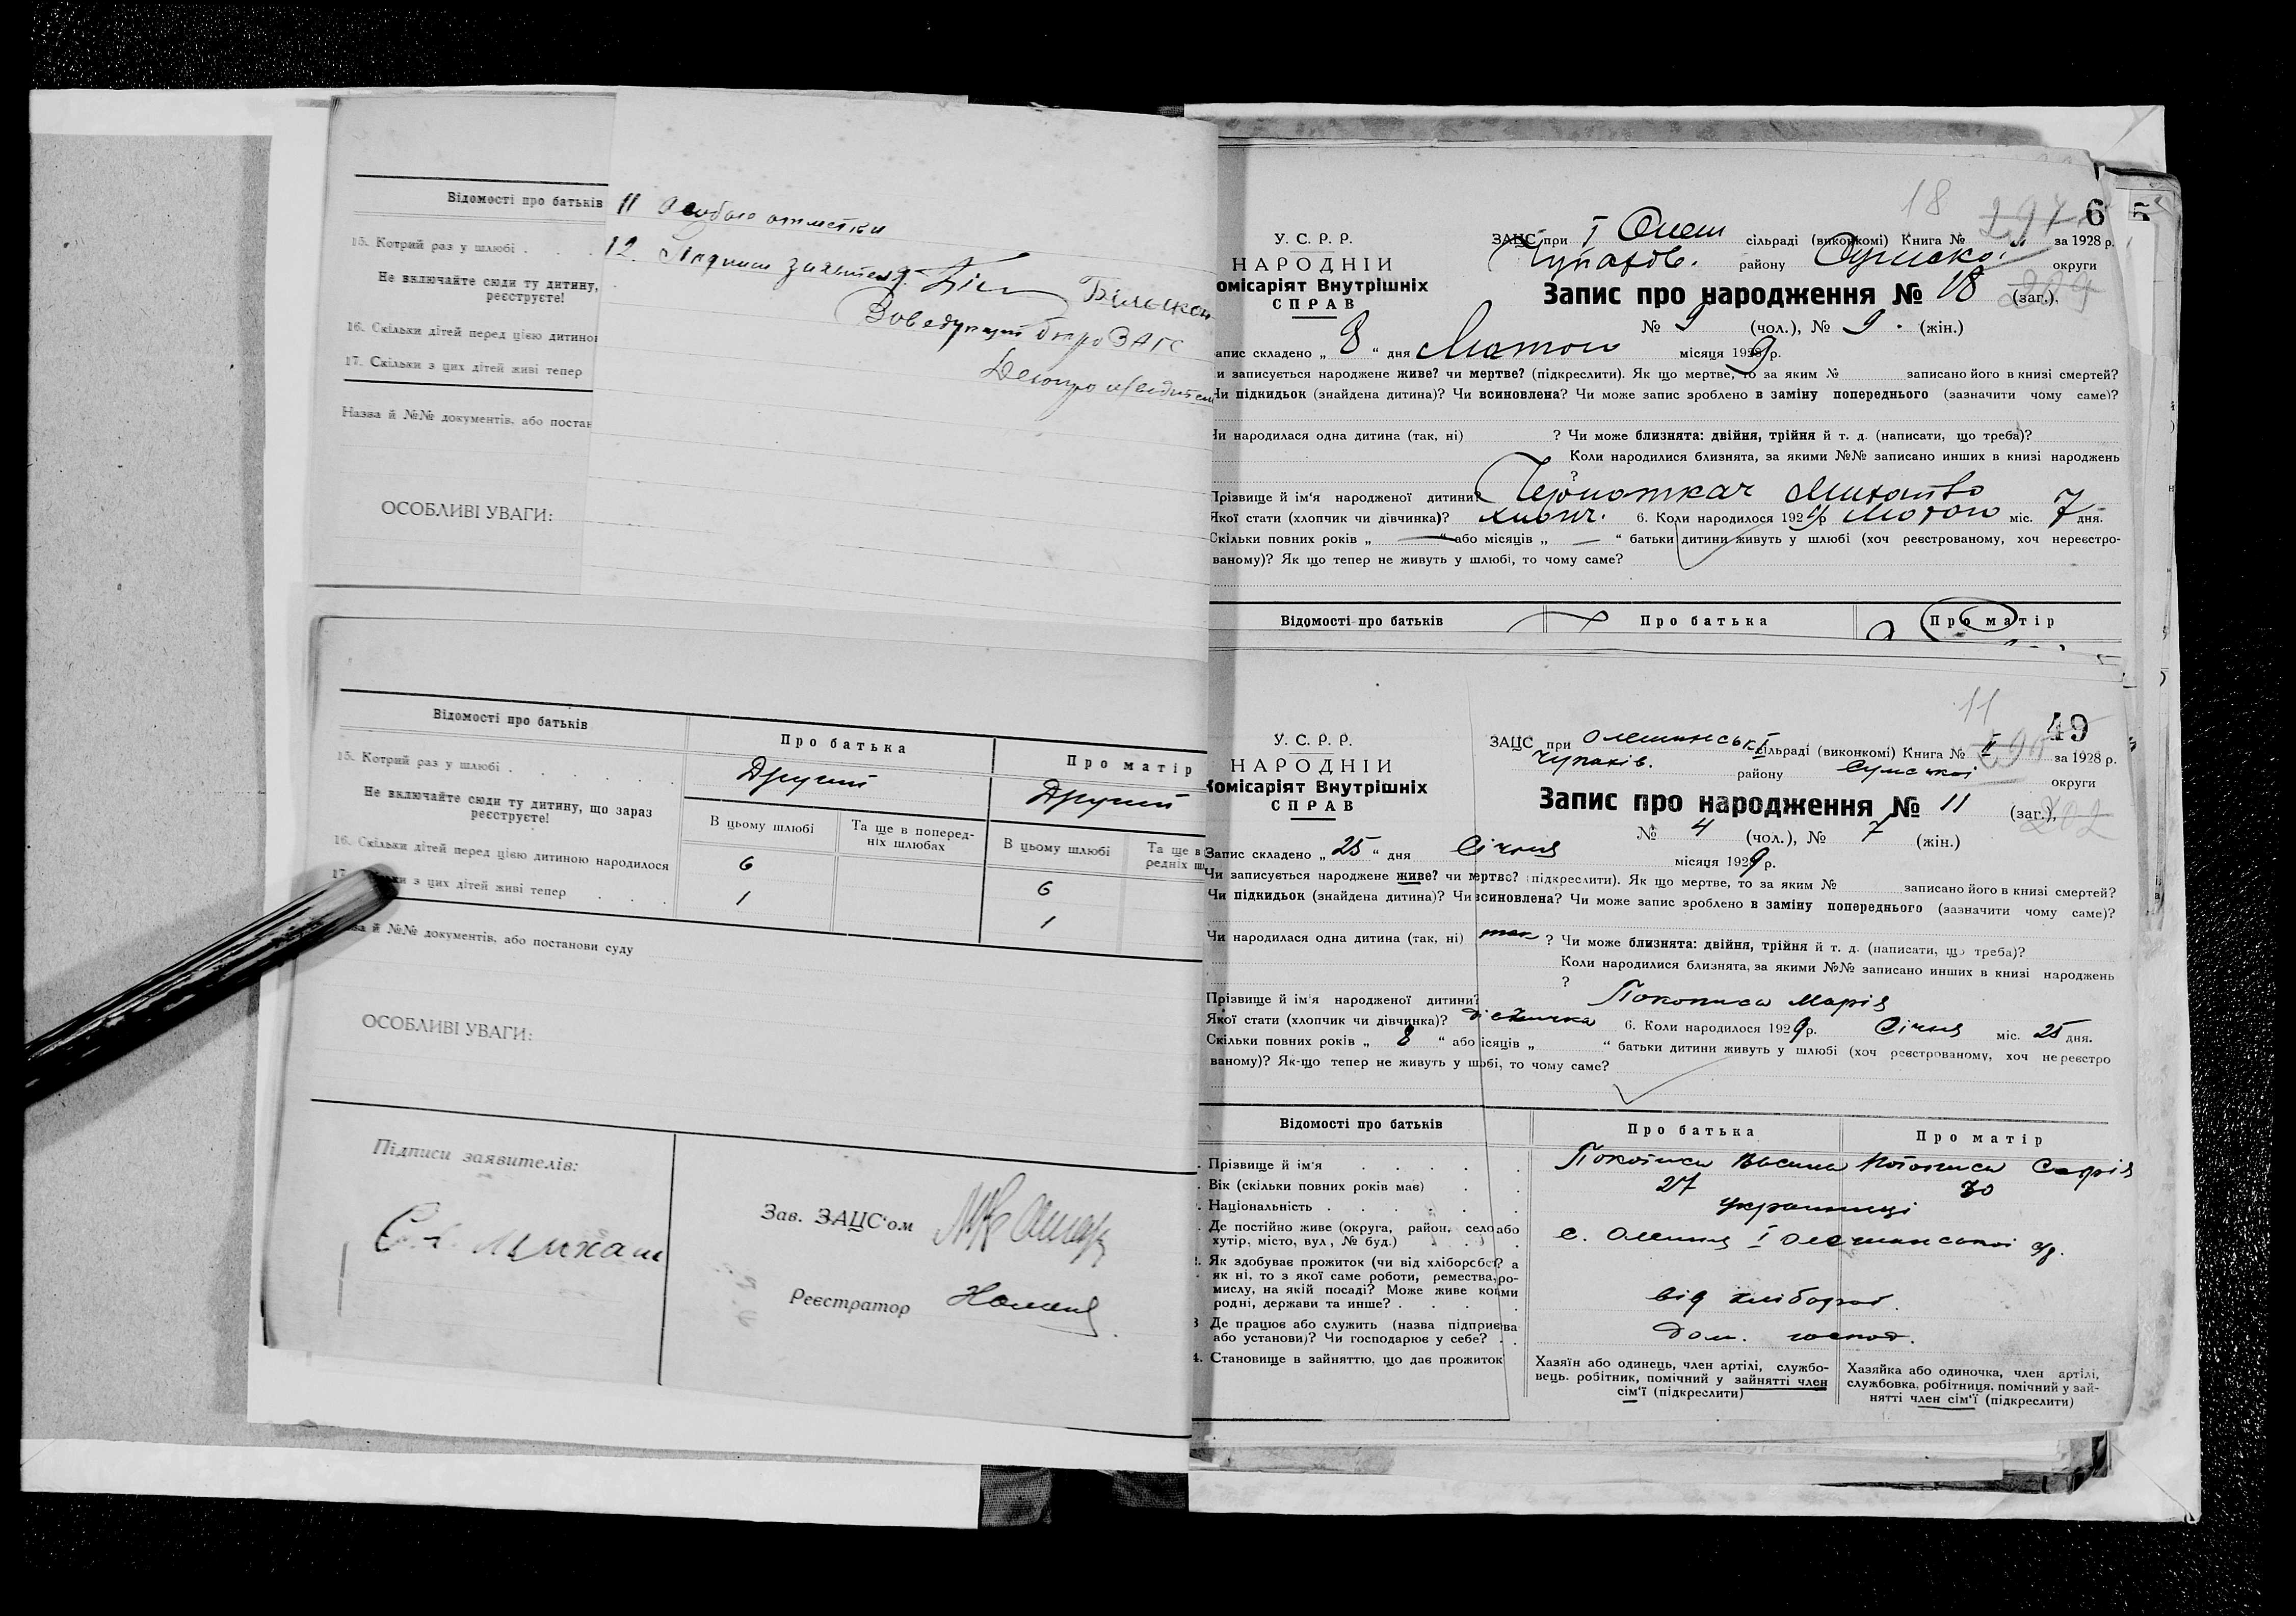 Відомості про батьків
15. Котрий раз у шлюбі . . .
Не включайте сюди ту дитину,
реєструєте!
16. Скільки дітей перед цією дитиною
17. Скільки з цих дітей живі тепер
Назва й №№ документів, або постан
ОСОБЛИВІ УВАГИ:
11 Особые отметки
12.
Заведующий бюро ЗАГС
Відомості про батьків
Про батька
Про матір
15. Котрий раз у шлюбі . . . . . .
Другий
Другий
Не включайте сюди ту дитину, що зараз
реєструєте!
В цьому шлюбі
Та ще в поперед-
ніх шлюбах
В цьому шлюбі
Та ще в
редніх
16. Скільки дітей перед цією дитиною народилося
6
6
з цих дітей живі тепер . . .
1
1
й №№ документів, або постанови суду
ОСОБЛИВІ УВАГИ:
Підписи заявителів:
Зав. ЗАЦС'ом
Реєстратор
18
6
У. С. Р. Р.
НАРОДНІЙ
омісаріят Внутрішніх
СПРАВ
ЗАЦС при I Олеш сільраді (виконкомі) Книга № за 1928 р.
Чупахов. району Сумсько округи
Запис про народження № 18 (заг.).
№ 9 (чол.), № 9 (жін.)
апис складено „ 8 “ дня Лютого місяця 1929 р.
и записується народжене живе? чи мертве? (підкреслити). Як що мертве, то за яким № записано його в книзі смертей?
Чи підкидьок (знайдена дитина)? Чи всиновлена? Чи може запис зроблено в заміну попереднього (зазначити чому саме)?
Чи народилася одна дитина (так, ні) ? Чи може близнята: двійня, трійня й т. д. (написати, що треба)?
Коли народилися близнята, за якими №№ записано инших в книзі народжень
?
Прізвище й ім'я народженої дитини?
Якої стати (хлопчик чи дівчинка)? хлопч. 6. Коли народилося 1929 р Лютого міс. 7 дня.
Скільки повних років „ — “ або місяців „ — “ батьки дитини живуть у шлюбі (хоч реєстрованому, хоч нереєстро-
ваному)? Як що тепер не живуть у шлюбі, то чому саме?
Відомості про батьків
Про батька
Про матір
11
49
У. С. Р. Р.
НАРОДНІЙ
Комісаріят Внутрішніх
СПРАВ
ЗАЦС при Олешинській сільраді (виконкомі) Книга № за 1928 р.
Чупахів. району Сумської округи
Запис про народження № 11 (заг.),
№ 4 (чол.), № 7 (жін.)
Запис складено „ 25 “ дня Січня місяця 1929 р.
Чи записується народжене живе? чи мертве? (підкреслити). Як що мертве, то за яким № записано його в книзі смертей?
Чи підкидьок (знайдена дитина)? Чи всиновлена? Чи може запис зроблено в заміну попереднього (зазначити чому саме)?
Чи народилася одна дитина (так, ні) так ? Чи може близнята: двійня, трійня й т. д. (написати, що треба)?
Коли народилися близнята, за якими №№ записано инших в книзі народжень
?
Прізвище й ім'я народженої дитини? Марія
Якої стати (хлопчик чи дівчинка)? дівчинка 6. Коли народилося 1929 р. Січня міс. 25 дня.
Скільки повних років „ 8 “ або ісяців „ “ батьки дитини живуть у шлюбі (хоч реєстрованому, хоч нереєстро
ваному)? Як-що тепер не живуть у шлюбі, то чому саме?
Відомості про батьків
Про батька
Про матір
Прізвище й ім'я . . . . .
Софія
Вік (скільки повних років має) . .
27
30
Національність . . . . . .
українці
Де постійно живе (округа, район, село або
хутір, місто, вул., № буд.) . . .
Як здобуває прожиток (чи від хліборобст? а
як ні, то з якої саме роботи, ремества, ро-
мислу, на якій посаді? Може живе коштами
родні, держави та инше? . . . .
від хлібороб.
Де працює або служить (назва підприємва
або установи)? Чи господарює у себе? . .
дом. господ.
4. Становище в зайняттю, що дає прожиток
Хазяїн або одинець, член артілі, службо-
вець. робітник, помічний у зайнятті член
сім'ї (підкреслити)
Хазяйка або одиночка, член артілі,
службовка, робітниця, помічний у зай-
нятті член сім'ї (підкреслити)